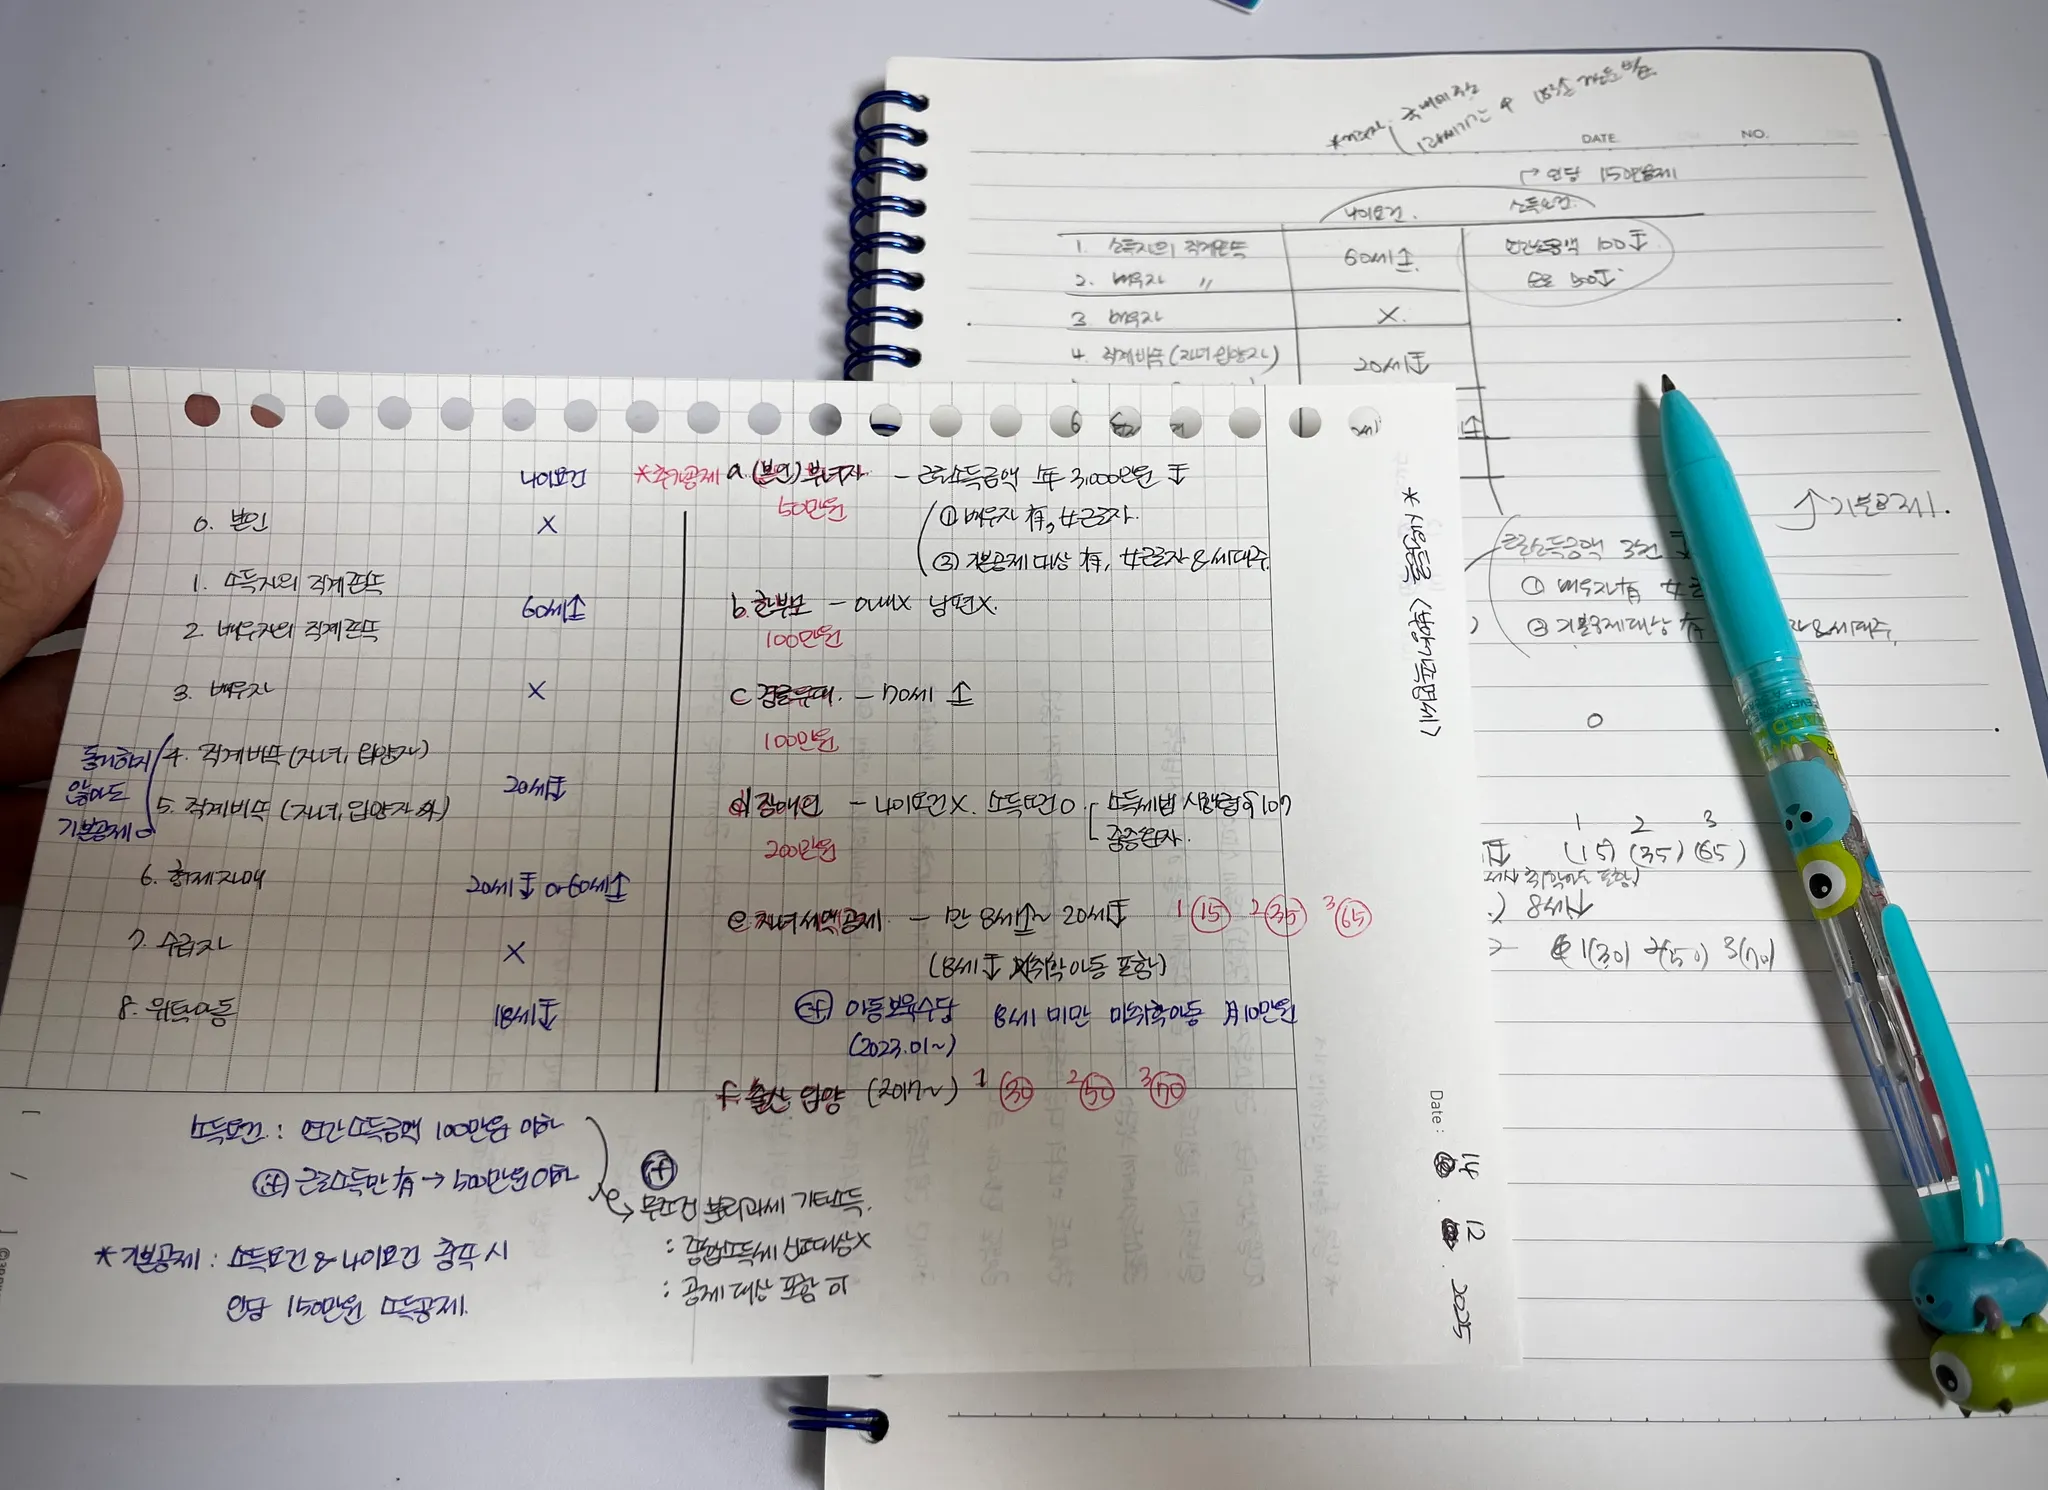 DATE
NO.
→ 인당 150만공제
나이요건. 소득요건.
1. 소득자의 직계존속 60세↑ 연간소득금액 100↓
2. 배우자 〃 500↓
3 배우자 X.
4. 직계비속(자녀 입양자) 20세↓
↑ 기본공제.
근로소득금액 3천
① 배우자有 女근
② 기본공제대상 有 & 세대주.
0
1 2 3
(15) (35) (65)
8세↑
1(30) 2(50) 3(70)
* 신인등록 <부양가족명세>
Date: 14 . 12 . 2025
나이요건
0. 본인 X
1. 소득자의 직계존속
60세↑
2. 배우자의 직계존속
3. 배우자 X
동거하지 않아도 기본공제 O
4. 직계비속 (자녀, 입양자)
20세↓
5. 직계비속 (자녀, 입양자 外)
6. 형제자매 20세↓ or 60세↑
7. 수급자 X
8. 위탁아동 18세↓
*추가공제 a. (본인) 부녀자 - 근로소득금액 年 3,000만원 ↓
50만원 ① 배우자 有, 女근로자.
② 기본공제대상 有, 女근로자 & 세대주.
b. 한부모 - 아내X 남편X.
100만원
c 경로우대. - 70세 ↑
100만원
d 장애인 - 나이요건X. 소득요건O. 소득세법 시행령 107
200만원 중증환자.
e. 자녀세액공제 - 만 8세↑~ 20세↓ 1 15 2 35 3 65
(8세↓ 취학아동 포함)
cf 아동보육수당 8세 미만 미취학아동 月10만원
(2023.01~)
f. 출산 입양 (2017~) 1 30 2 50 3 70
소득요건 : 연간소득금액 100만원 이하
cf 근로소득만 有 → 500만원 이하
* 기본공제 : 소득요건 & 나이요건 충족 시
인당 150만원 소득공제.
cf
무조건 분리과세 기타소득.
: 종합소득세 신고대상X
: 공제 대상 포함 可